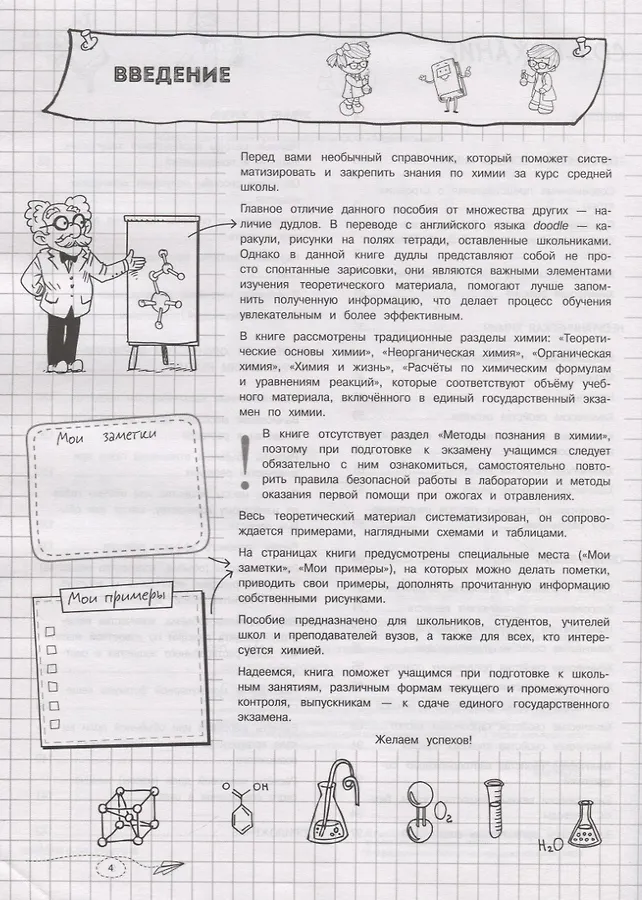 ВВЕДЕНИЕ
Перед вами необычный справочник, который поможет систе-
матизировать и закрепить знания по химии за курс средней
школы.
Главное отличие данного пособия от множества других — на-
личие дудлов. В переводе с английского языка doodle — ка-
ракули, рисунки на полях тетради, оставленные школьниками.
Однако в данной книге дудлы представляют собой не про-
сто спонтанные зарисовки, они являются важными элементами
изучения теоретического материала, помогают лучше запом-
нить полученную информацию, что делает процесс обучения
увлекательным и более эффективным.
В книге рассмотрены традиционные разделы химии: «Теорети-
ческие основы химии», «Неорганическая химия», «Органическая
химия», «Химия и жизнь», «Расчёты по химическим формулам
и уравнениям реакций», которые соответствуют объёму учеб-
ного материала, включённого в единый государственный экза-
мен по химии.
Мои заметки
! В книге отсутствует раздел «Методы познания в химии»,
поэтому при подготовке к экзамену учащимся следует
обязательно с ним ознакомиться, самостоятельно повто-
рить правила безопасной работы в лаборатории и методы
оказания первой помощи при ожогах и отравлениях.
Весь теоретический материал систематизирован, он сопрово-
ждается примерами, наглядными схемами и таблицами.
На страницах книги предусмотрены специальные места («Мои
заметки», «Мои примеры»), на которых можно делать пометки,
приводить свои примеры, дополнять прочитанную информацию
собственными рисунками.
Мои примеры
Пособие предназначено для школьников, студентов, учителей
школ и преподавателей вузов, а также для всех, кто интере-
суется химией.
Надеемся, книга поможет учащимся при подготовке к школь-
ным занятиям, различным формам текущего и промежуточного
контроля, выпускникам — к сдаче единого государственного
экзамена.
Желаем успехов!
O OH
O2
H2O
4